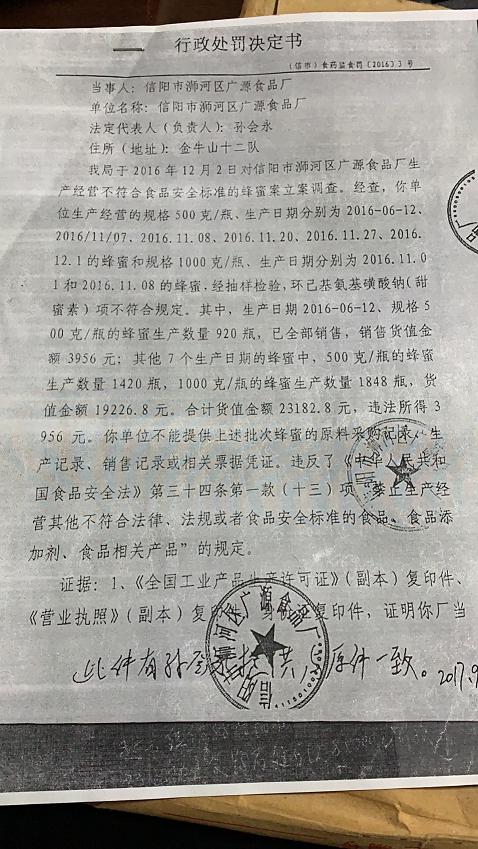 行政处罚决定书
(信市)食药监食罚〔2016〕3号
当事人: 信阳市浉河区广源食品厂
单位名称: 信阳市浉河区广源食品厂
法定代表人(负责人): 孙会永
住所(地址): 金牛山十二队
我局于2016年12月2日对信阳市浉河区广源食品厂生
产经营不符合食品安全标准的蜂蜜案立案调查。经查, 你单
位生产经营的规格500克/瓶、生产日期分别为2016-06-12、
2016/11/07、2016.11.08、2016.11.20、2016.11.27、2016.
12.1的蜂蜜和规格1000克/瓶、生产日期分别为2016.11.0
1和2016.11.08的蜂蜜, 经抽样检验, 环己基氨基磺酸钠(甜
蜜素)项不符合规定。其中, 生产日期2016-06-12、规格5
00克/瓶的蜂蜜生产数量920瓶, 已全部销售, 销售货值金
额3956元; 其他7个生产日期的蜂蜜中, 500克/瓶的蜂蜜
生产数量1420瓶, 1000克/瓶的蜂蜜生产数量1848瓶, 货
值金额19226.8元。合计货值金额23182.8元, 违法所得3
956元。你单位不能提供上述批次蜂蜜的原料采购记录、生
产记录、销售记录或相关票据凭证。违反了《中华人民共和
国食品安全法》第三十四条第一款(十三)项“禁止生产经
营其他不符合法律、法规或者食品安全标准的食品、食品添
加剂、食品相关产品”的规定。
证据: 1、《全国工业产品生产许可证》(副本)复印件、
《营业执照》(副本)复印件、身份证复印件, 证明你厂当
信阳市浉河区广源食品厂
此件有孙会永提供 原件一致。2017.9